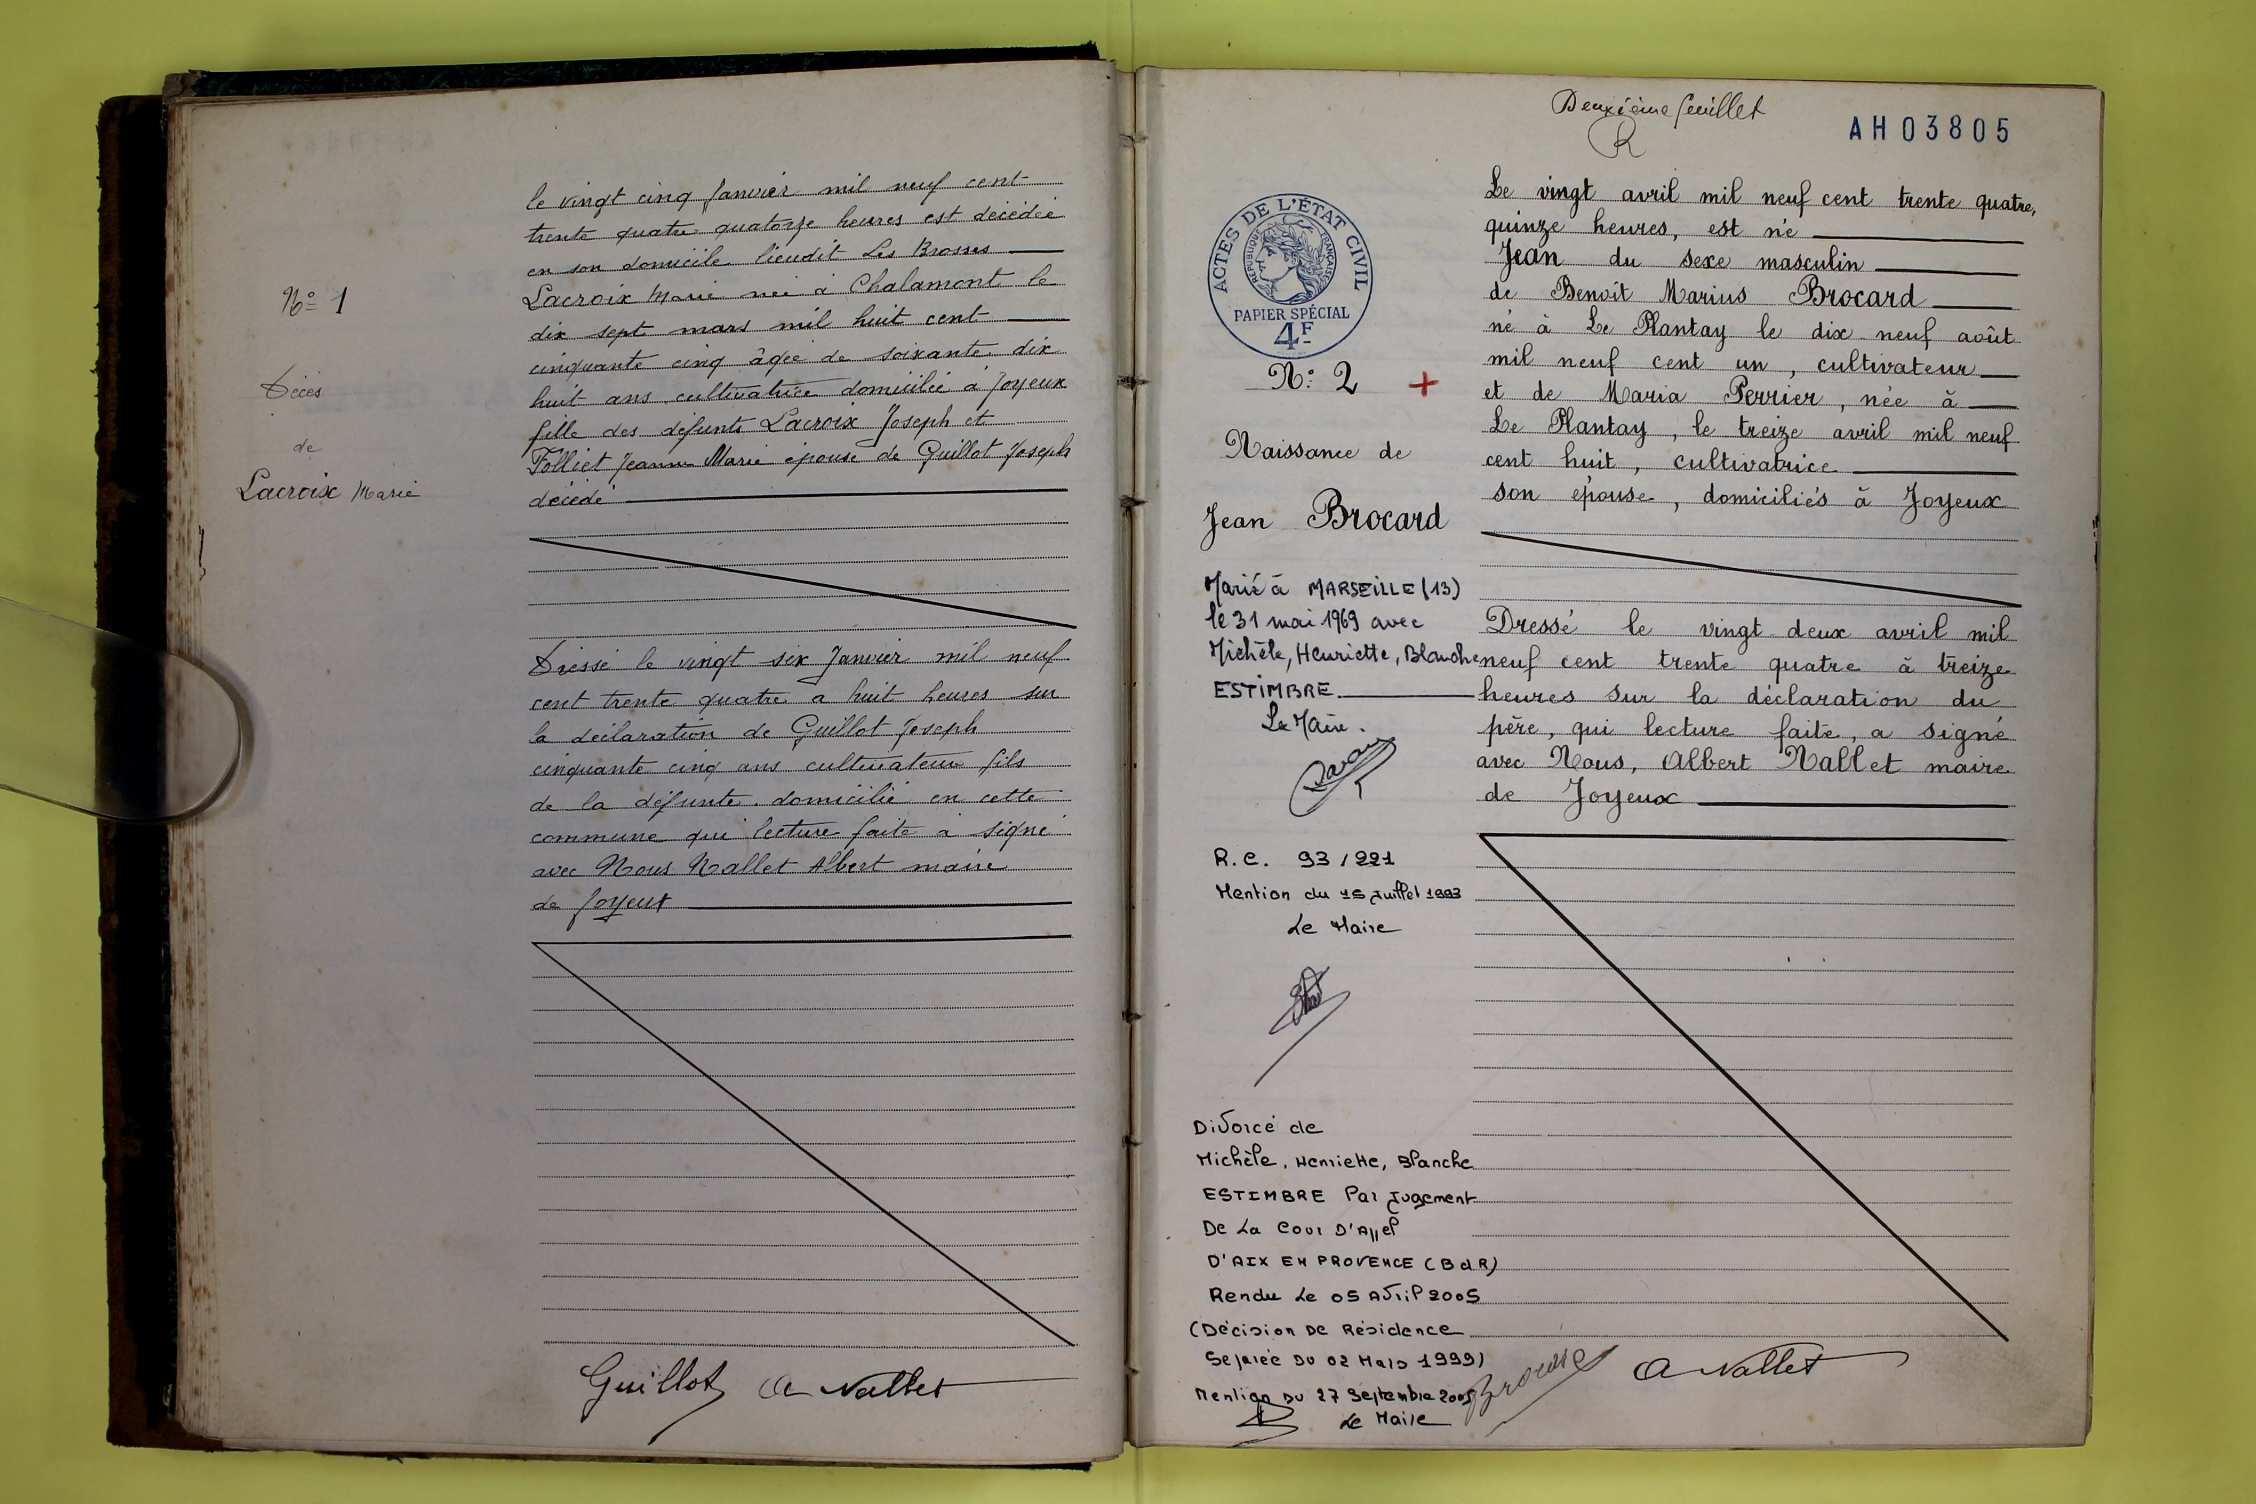 le vingt cinq Janvier mil neuf cent
trente quatre quatorze heures est décédée
en son domicile lieudit Les Brosses
Lacroix Marie née à Chalamont le
dix sept mars mil huit cent
cinquante cinq âgée de soixante dix
huit ans cultivatrice domiciliée à Joyeux
fille des défunts Lacroix Joseph et
Folliet Jeanne Marie épouse de Guillot Joseph
décédé
N° 1
Décès
de
Lacroix Marie
Dressé le vingt six Janvier mil neuf
cent trente quatre a huit heures sur
la déclaration de Guillot Joseph
cinquante cinq ans cultivateur fils
de la défunte domicilié en cette
commune qui lecture faite a signé
avec Nous Nallet Albert maire
de Joyeux
Guillot A Nallet
Deuxième feuillet
R
AH03805
ACTES DE L'ÉTAT CIVIL
RÉPUBLIQUE FRANÇAISE
PAPIER SPÉCIAL
4F
N° 2 +
Naissance de
Jean Brocard
Marié à MARSEILLE (13)
le 31 mai 1969 avec
Michèle, Henriette, Blanche
ESTIMBRE
Le Maire.
R.C. 93/221
Mention du 15 juillet 1993
Le Maire
Divorcé de
Michèle, Henriette, Blanche
ESTIMBRE Par Jugement
De La Cour D'Appel
D'AIX EN PROVENCE (BdR)
Rendu Le 05 Avril 2005
(Décision De Résidence
Séparée Du 02 Mars 1999)
Mention Du 27 Septembre 2005
Le Maire
Le vingt avril mil neuf cent trente quatre,
quinze heures, est né
Jean du sexe masculin
de Benoît Marius Brocard
né à Le Plantay le dix neuf août
mil neuf cent un, cultivateur
et de Maria Perrier, née à
Le Plantay, le treize avril mil neuf
cent huit, cultivatrice
son épouse, domiciliés à Joyeux
Dressé le vingt deux avril mil
neuf cent trente quatre à treize
heures sur la déclaration du
père, qui lecture faite, a signé
avec Nous, Albert Nallet maire
de Joyeux
A Nallet